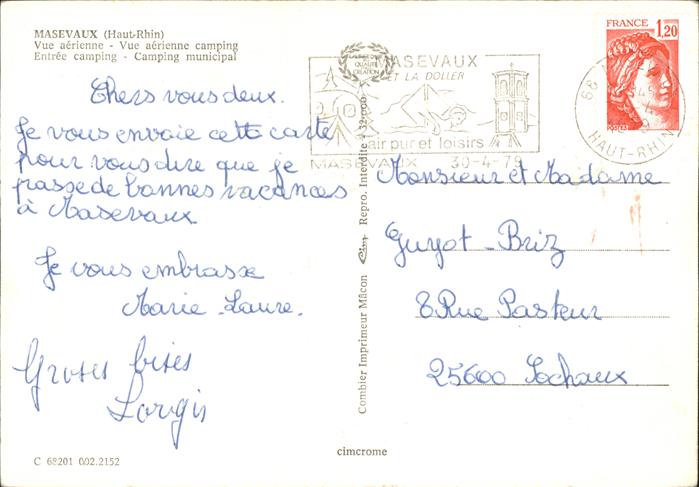 MASEVAUX (Haut-Rhin)
Vue aérienne - Vue aérienne camping
Entrée camping - Camping municipal
Chers vous deux.
Je vous envoie cette carte
pour vous dire que je
passe de bonnes vacances
à Masevaux
Je vous embrasse
Marie-Laure.
Groses bises
C 68201 002.2152
Combier Imprimeur Mâcon
Repro. Interdite
cimcrome
MASEVAUX
ET LA DOLLER
air pur et loisirs
MASEVAUX 30-4-79
FRANCE 1,20
POSTES
68
HAUT-RHIN
Monsieur et Madame
Guyot-Briz
8 Rue Pasteur
25600 Sochaux